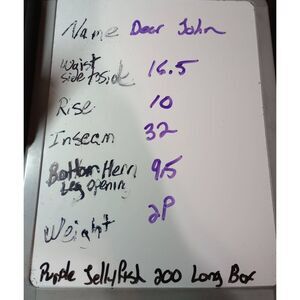 Name Dear John
Waist
side to side 16.5
Rise 10
Inseam 32
Bottom Hem 9.5
Leg Opening
Weight 2P
Purple Jellyfish 200 Long Box